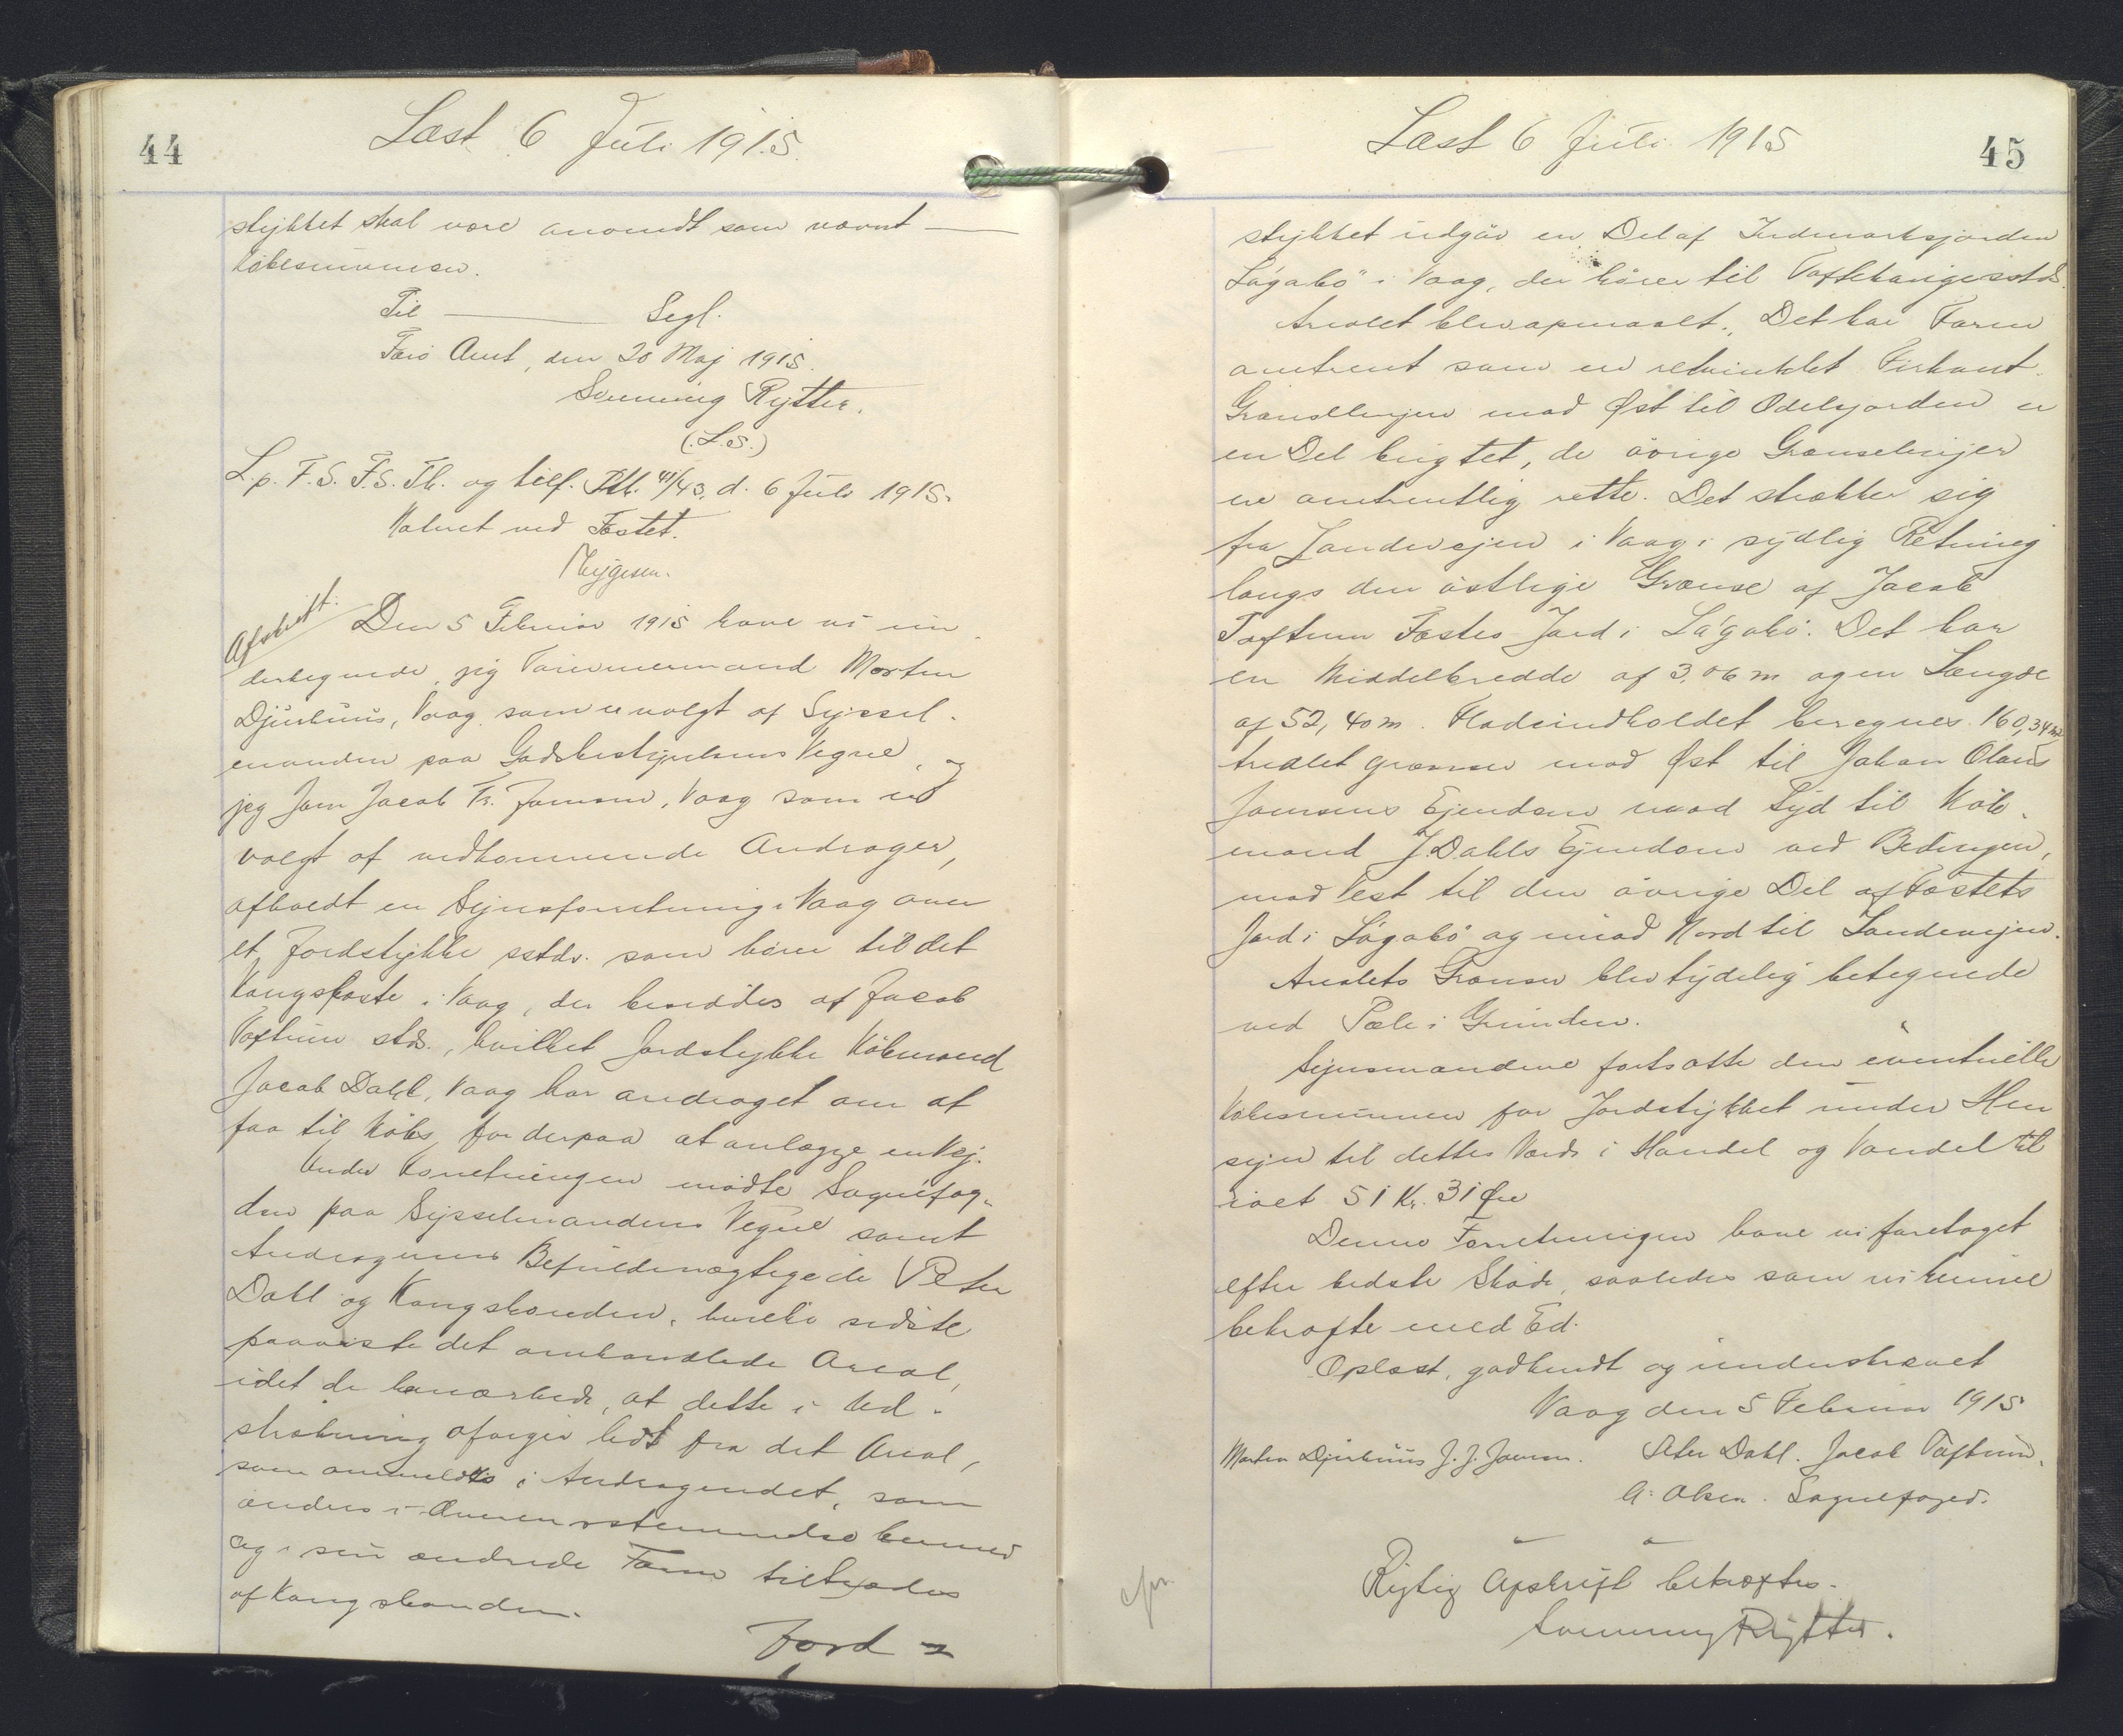 44
Læst 6 Juli 1915.
stykket skal være anvendt som nævnt —
Købesummen.
Til — Segl.
Færø Amt, den 20 Maj 1915.
Svenning Rytter.
(L.S.)
L. p. F. S. F. S. Th. og tilf. Ptb. 41/43, d. 6 Juli 1915.
Noteret ved Fæstet.
Afskrift:
Den 5 Februar 1915 have vi un-
dertegnede, jeg Tømmermand Morten
Djurhuus, Vaag som er valgt af Syssel-
manden paa Godsbestyrelsens Vegne, og
jeg Joen Jacob Fr. Joensen, Vaag som er
valgt af vedkommende Andrager,
afholdt en Synsforretning i Vaag over
et Jordstykke sstds. som hører til det
Kongsfæste i Vaag, der besiddes af Jacob
Toftum stds., hvilket Jordstykke Købmand
Jacob Dahl, Vaag har andraget om at
faa til Købs, for derpaa at anlægge en Vej.
Under Forretningen mødte Sognefog-
den paa Sysselmandens Vegne samt
Andragerens Befuldmægtigede Peter
Dahl og Kongsbonden, hvilke sidste
paaviste det omhandlede Areal,
idet de bemærkede, at dette i Ud-
strækning afviger lidt fra det Areal,
som ommeldtes i Andragendet, som
ændres i Overensstemmelse hermed
og i sin ændrede Form tiltrædes
af Kongsbonden.
Jord-
45
Læst 6 Juli 1915
stykket udgør en Del af Indmarksjorden
Lágabø" i Vaag, der hører til Toftehauge sstds.
Arealet blev opmaalt. Det har Form
omtrent som en retvinklet Firkant.
Grænselinjen mod Øst til Odelsjorden er
en Del bugtet, de øvrige Grænselinjer
er omtrentlig rette. Det strækker sig
fra Landevejen i Vaag i sydlig Retning
langs den østlige Grænse af Jacob
Toftum Fæstes Jord i Lágabø. Det har
en Middelbredde af 3,06 m og en Længde
af 52,40 m. Fladeindholdet beregnes 160,34 m2
Arealet grænser mod Øst til Johan Olaus
Joensens Ejendom mod Syd til Køb-
mand J. Dahls Ejendom ved Bedingen,
mod Vest til den øvrige Del af Fæstets
Jord i Lágabø og mod Nord til Landevejen.
Arealets Grænser blev tydelig betegnede
ved Pæle i Grunden.
Synsmændene fortsatte den eventuelle
Købesummen for Jordstykket under Hen
syn til dettes Værdi i Handel og Vandel til
ialt 51 Kr. 31 Øre
Denne Forretningen have vi foretaget
efter bedste Skøn, saaledes som vi kunne
bekræfte med Ed.
Oplæst, godkendt og underskrevet
Vaag den 5 Februar 1915
Morten Djurhuus J. J. Joensen. Peter Dahl. Jacob Toftum.
A. Olsen. Sognefoged.
Rigtig Afskrift bekræftes.
Svenning Rytter.